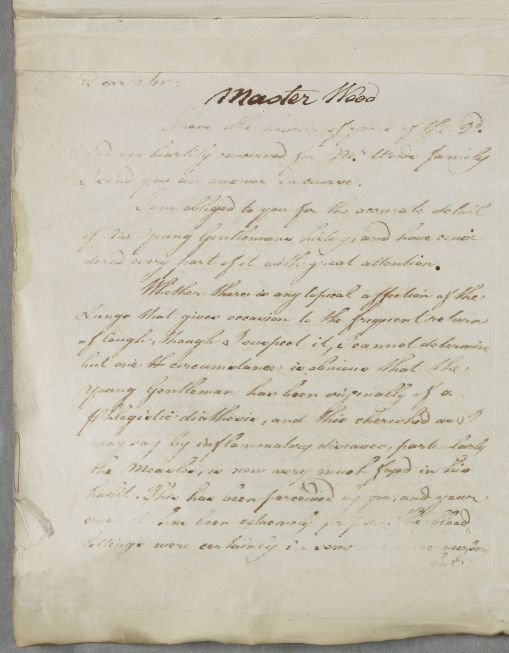 Dear Sir
Master Wood
I have the honour of yours of the 2d.
and am heartily concerned for Mr. Woods family
I send you an answer in course.
I am obliged to you for the accurate detail
of the Young Gentlemans history, and have consi
dered every part of it with great attention.
Whether there is any topical affection of the
Lungs that gives occasion to the frequent return
of Cough, though I suspect it, I cannot determine
but one circumstance is obvious that the
Young Gentleman has been originally of a
Phlogistic diathesis, and this cherished as I
may say by inflammatory diseases, particularly
the Measles, is now very much fixed in the
habit. This has been perceived by you, and your
has been extremely proper. The blood
lettings were certainly in some necessary
but